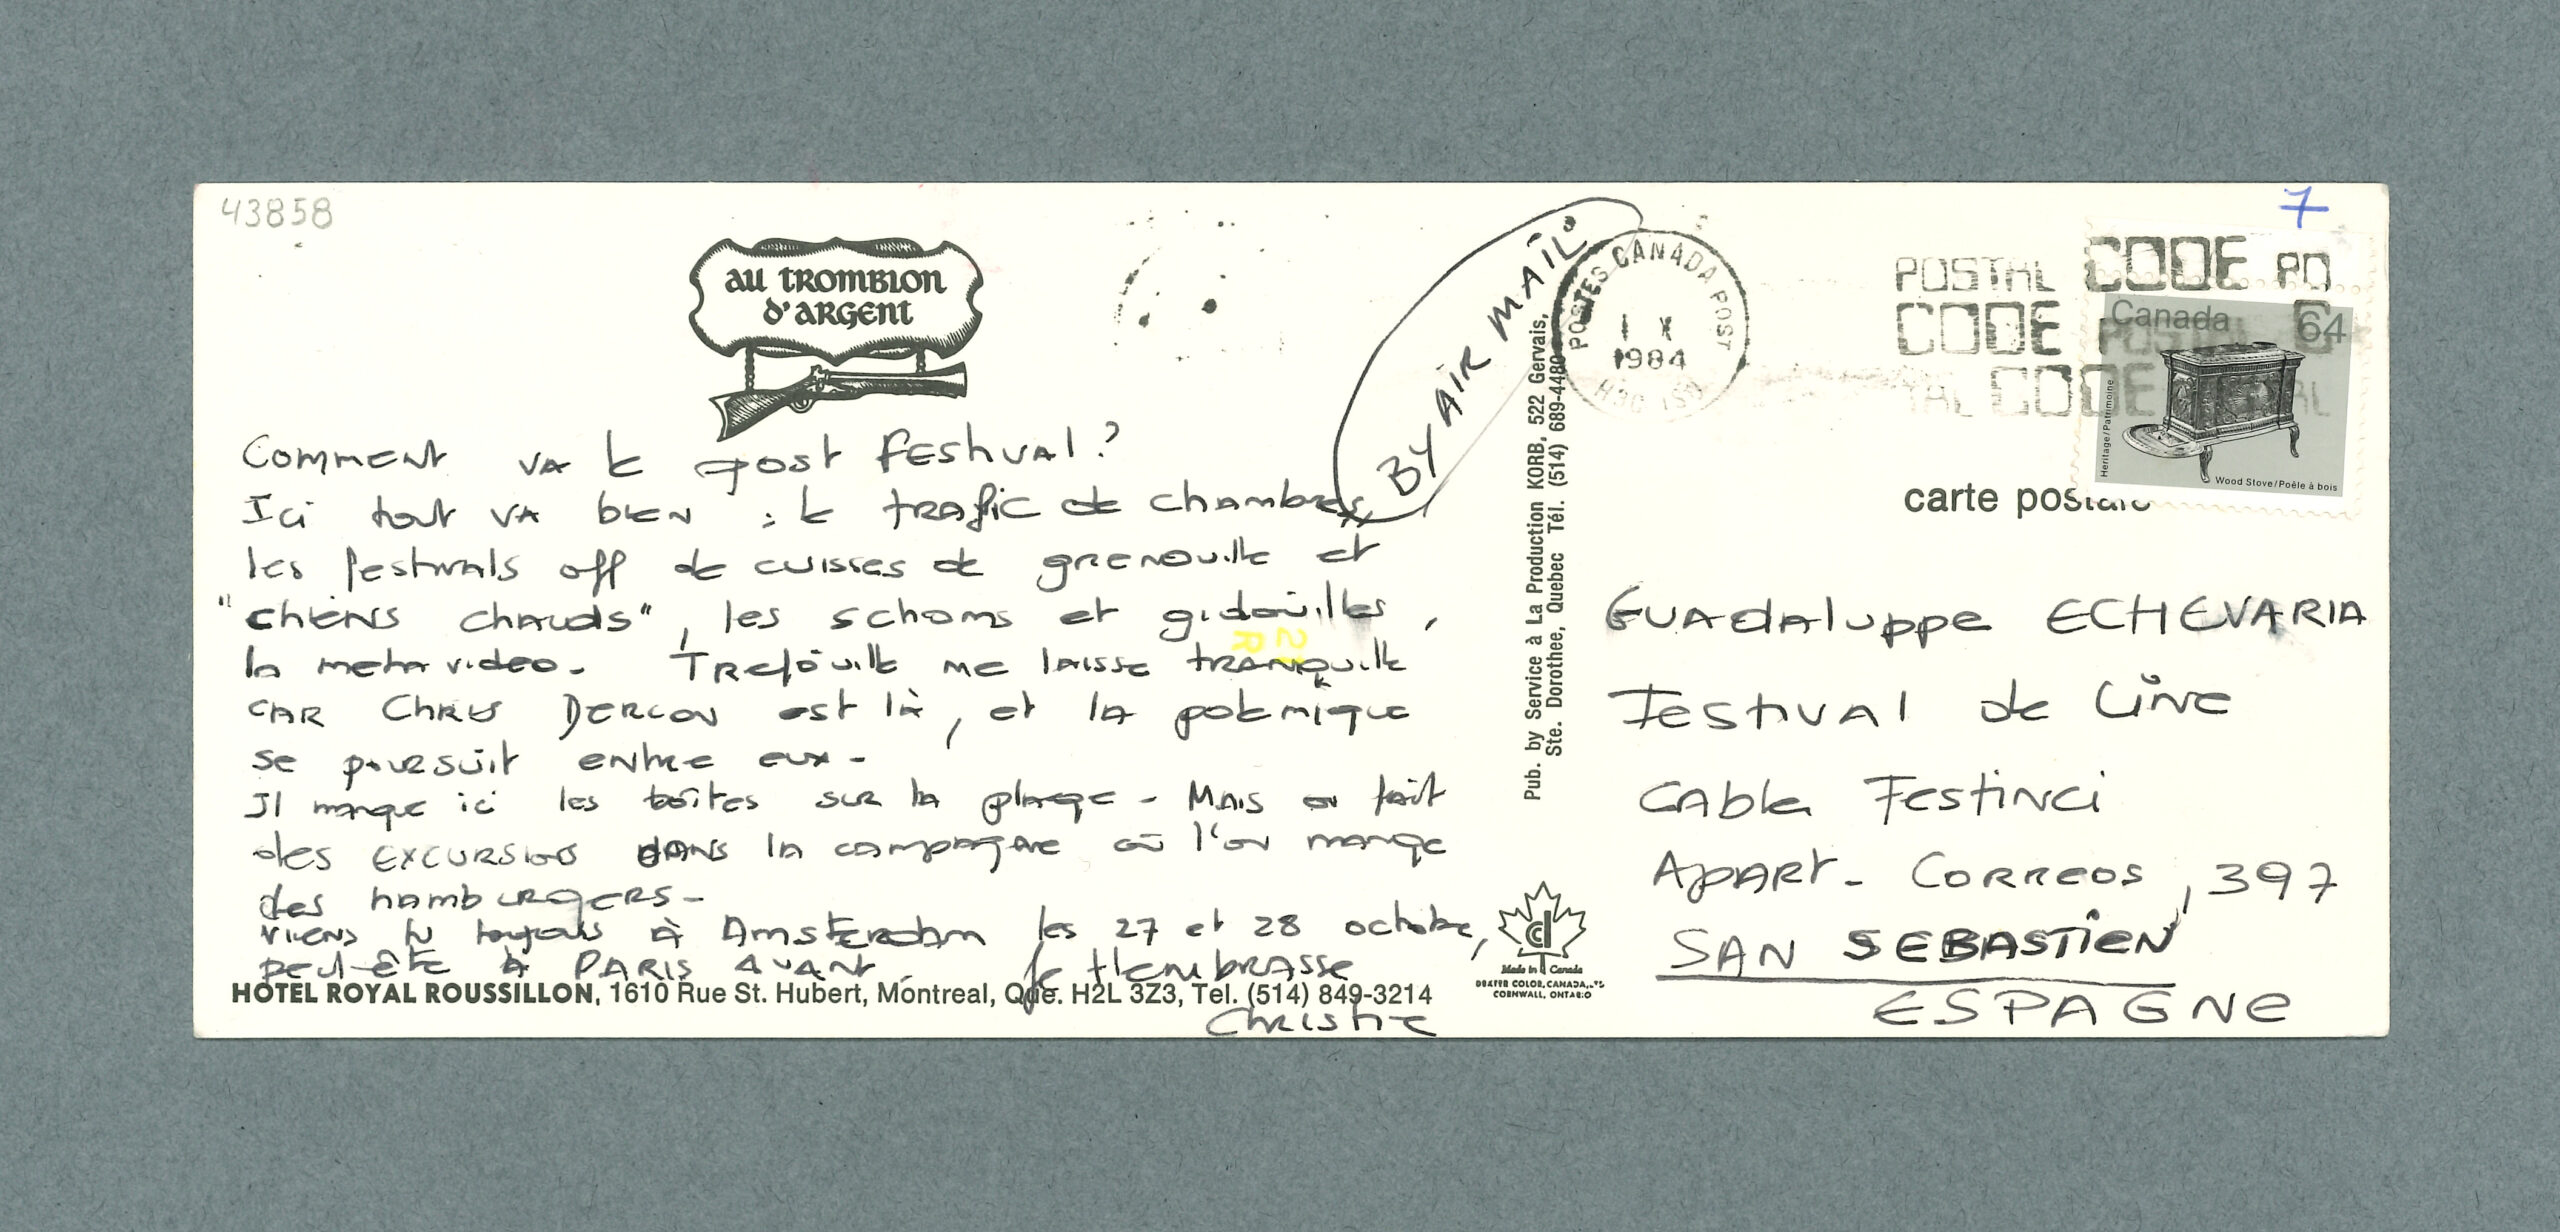 43858
7
AU TROMBLON
D'ARGENT
"BY AIR MAIL"
POSTES CANADA POST
I X
1984
POSTAL CODE PO
CODE POSTAL C
TAL CODE POSTAL
Canada 64
Heritage/Patrimoine
Wood Stove/Poêle à bois
carte postale
Comment va le post festival?
Ici tout va bien : le trafic de chambres,
les festivals off de cuisses de grenouille et
"chiens chauds", les schoms et gidouilles,
la meta video. Trefouille me laisse tranquille
car Chris Dercon est là, et la polemique
se poursuit entre eux -
Il manque ici les boîtes sur la plage - Mais on fait
des excursions dans la campagne où l'on mange
des hamburgers -
viens tu toujours à Amsterdam les 27 et 28 octobre,
peut-être à PARIS avant. Je t'embrasse
Christine
HÔTEL ROYAL ROUSSILLON, 1610 Rue St. Hubert, Montreal, Que. H2L 3Z3, Tel. (514) 849-3214
Pub. by Service à La Production KORB, 522 Gervais,
Ste. Dorothee, Quebec Tél. (514) 689-4480
Made in Canada
DEXTER COLOR, CANADA, LTD
CORNWALL, ONTARIO
Guadaluppe ECHEVARIA
Festival de Cine
Cable Festinci
Apart. Correos, 397
SAN SEBASTIEN
ESPAGNE